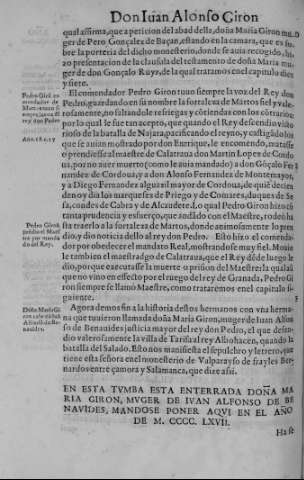 Don Iuan Alonso Giron
qual affirma, que a peticion del abad della, doña Maria Giron mu-
ger de Pero Gonçalez de Baçan, estando en la camara, que es so-
bre la porteria del dicho monesterio, donde se auia recogido, hi-
zo presentacion de la clausula del testamento de doña Maria mu-
ger de don Gonçalo Ruyz, de la qual tratamos en el capitulo diez
y siete.
El comendador Pedro Giron tuuo siempre la voz del Rey don
Pedro, guardando en su nombre la fortaleza de Martos fiel y vale-
rosamente, no faltandole refriegas y contiendas con los contrarios
por la qual le fue tan acepto, que quando el Rey don
rioso de la batalla de Najara, pacificando el reyno, y castigado los
que se auian mostrado por don Enrique, le encomendo, matasse
o prendiesse al maestre de Calatraua don Martin Lopez de Cordo-
ua, por no auer muerto (como le auia mandado) a don Gõçalo Fer-
nandez de Cordoua, y a don Alonso Fernandez de Montemayor,
y a Diego Fernandez alguazil mayor de Cordoua, de quiē decien-
den oy dia los marqueses de Priego y de Comares, duques de Se-
sa, condes de Cabra y de Alcaudete. Lo qual Pedro Giron hizo cõ
tanta prudencia y esfuerço, que andādo con el Maestre, rodeò ha-
sta traerlo a la fortaleza de Martos, donde animosamente lo pren-
dio, y dio noticia dello al rey don Pedro. Esto hizo el comenda-
dor por obedecer el mandato Real, mostrandose muy fiel. Mouie
le tambien el maestradgo de Calatraua, que el Rey dède luego le
dio, por que executasse la muerte o prision del Maestre: la qual assi
que no vino en effecto por el ruego del rey de Granada, Pedro Gi
ron siempre se llamò Maestre, como trataremos en el capitulo si-
guiente.
Agora demos fin a la historia destos hermanos con vna herma-
na que tuuieron llamada doña Maria Giron, muger de Iuan Alfon
so de Benauides justicia mayor del rey don Pedro, el que defen-
dio valerosamente la villa de Tarifa al rey Albohacen, quando la
batalla del Salado. Esto nos manifiesta el sepulchro y letrero, que
tiene esta señora en el monesterio de Valparayso de frayles Ber-
nardos entre çamora y Salamanca, que dize assi.
EN ESTA TVMBA ESTA ENTERRADA DOÑA MA
RIA GIRON, MVGER DE IVAN ALFONSO DE BE
NAVIDES, MANDOSE PONER AQVI EN EL AÑO
DE M. CCCC. LXVII.
Hase